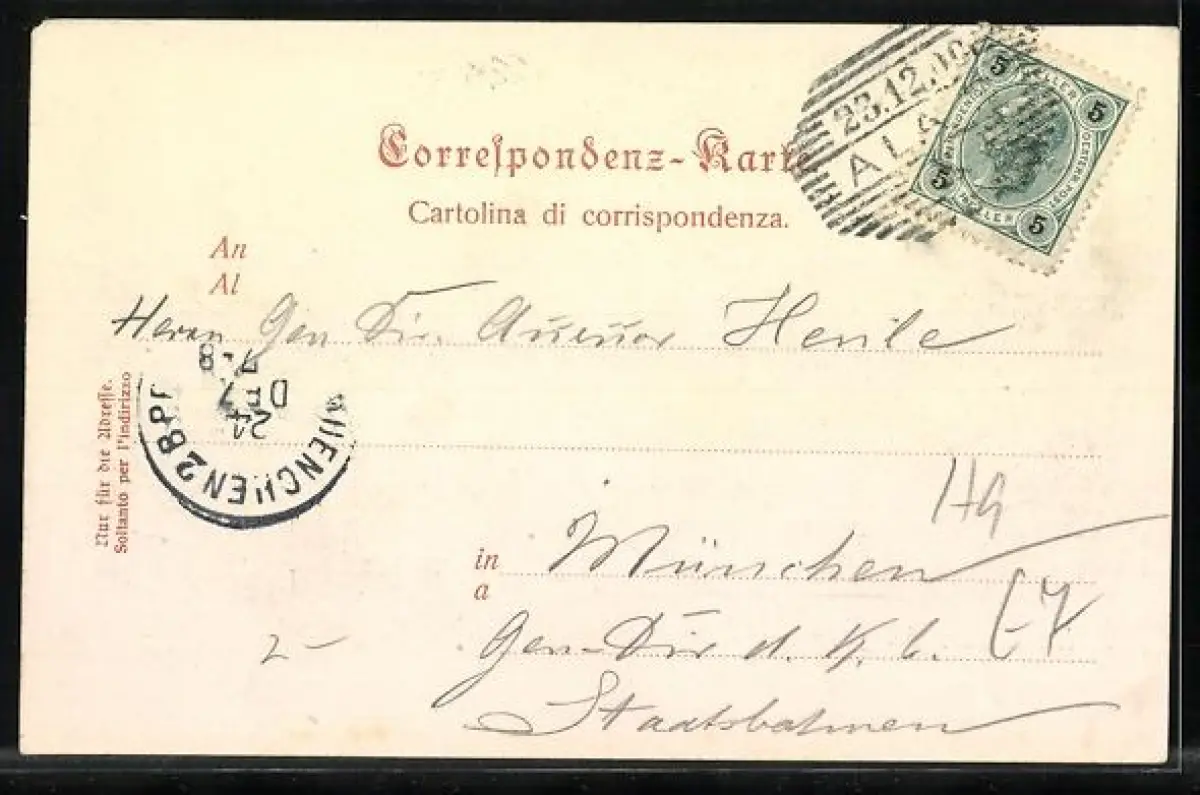 Correspondenz-Karte
Cartolina di corrispondenza.
23.12.00
ALA
5 HELLER 5
5 HELLER 5
An
Al
Herrn Gen Dir. Henle
7-8
DEZ
24
MUENCHEN 2 B.P.
Nur für die Adresse.
Soltanto per l'indirizzo
Ha
in München
a
Gen-Dir d. K. b.
Staatsbahnen
2-